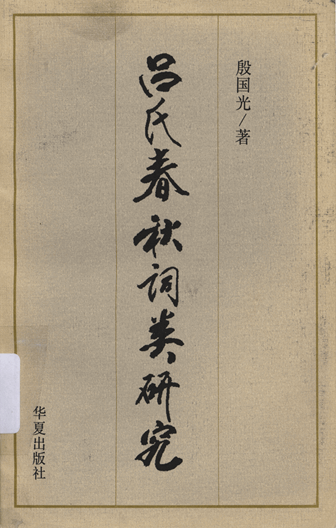 殷国光/著
吕氏春秋词类研究
华夏出版社